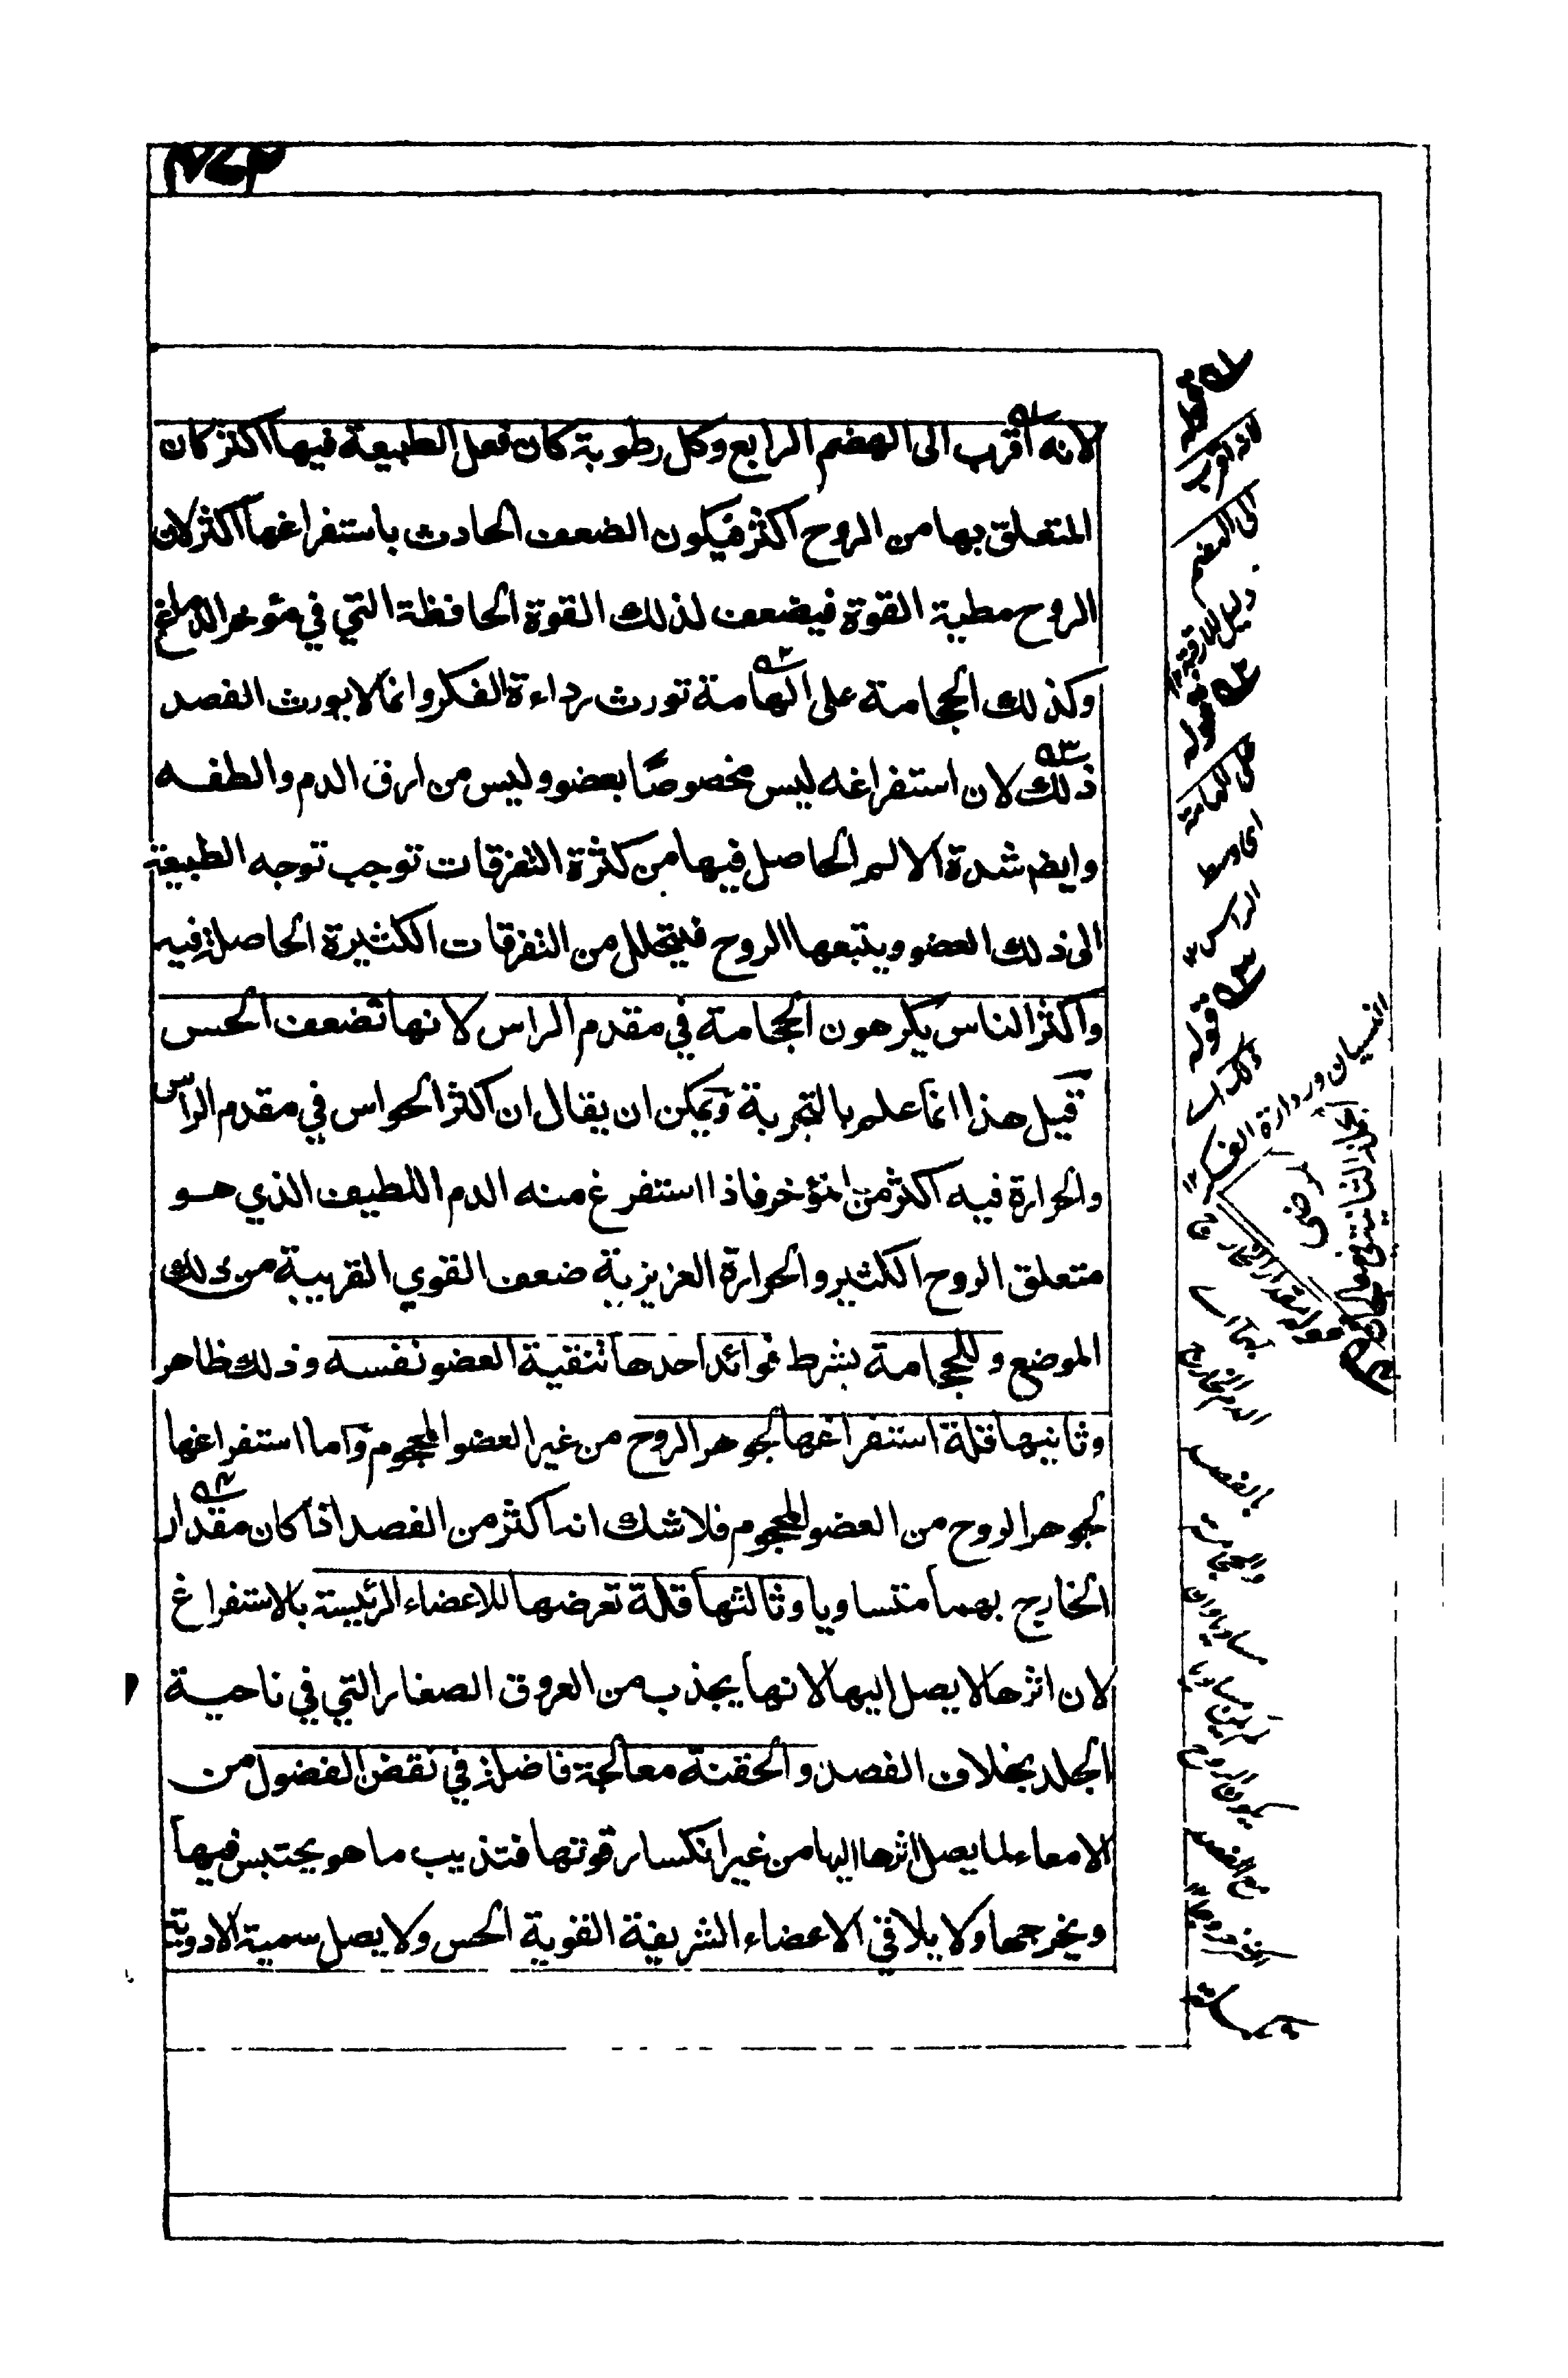 لانه اقرب الى الهضم الرابع وكل رطوبة كان فعل الطبيعة فيها اكثر كان
المتعلق بها من الروح اكثر فيكون الضعف الحادث باستفراغها اكثر لان
الروح مطية القوة فيضعف لذلك القوة الحافظة التي في مؤخر الدماغ
وكذلك الحجامة على الهامة تورث رداءة الفكر وانما لا يورث الفصد
ذلك لان استفراغه ليس مخصوصًا بعضو وليس من ارق الدم والطفه
وايضم شدة الالم الحاصل فيها من كثرة التفرقات توجب توجه الطبيعة
الى ذلك العضو ويتبعها الروح فيتحلل من التفرقات الكثيرة الحاصلة فيه
واكثر الناس يكرهون الحجامة في مقدم الراس لانها تضعف الحس
قيل هذا انما علم بالتجربة ويمكن ان يقال ان اكثر الحواس في مقدم الراس
والحرارة فيه اكثر من المؤخر فاذا استفرغ منه الدم اللطيف الذي هو
متعلق الروح الكثير والحرارة العزيزية ضعف القوي القريبة من ذلك
الموضع وللحجامة بشرط فوائد احدها تنقية العضو نفسه وذلك ظاهر
وثانيها قلة استفراغها لجوهر الروح من غير العضو المحجوم واما استفراغها
لجوهر الروح من العضو المحجوم فلا شك انه اكثر من الفصد اذا كان مقدار
الخارج بهما متساويا وثالثها قلة تعرضها للاعضاء الرئيسة بالاستفراغ
لان اثرها لا يصل اليها لانها يجذب من العروق الصغار التي في ناحية
الجلد بخلاف الفصد والحقنة معالجة فاضلة في نقض الفضول من
الامعاء لما يصل اثرها اليها من غير انكسار قوتها فتذيب ما هو يحتبس فيها
ويخرجها ولا يلاقي الاعضاء الشريفة القوية الحس ولا يصل سمية الادوية
قوله
لانه اقرب
الى الهضم
دليل للارقية
قوله
على الهامة
اى وسط
الراس
قوله
النسيان وردارة الفكر
قوله مقدار الخارج
بهما
الدم الخارج
بالفصد